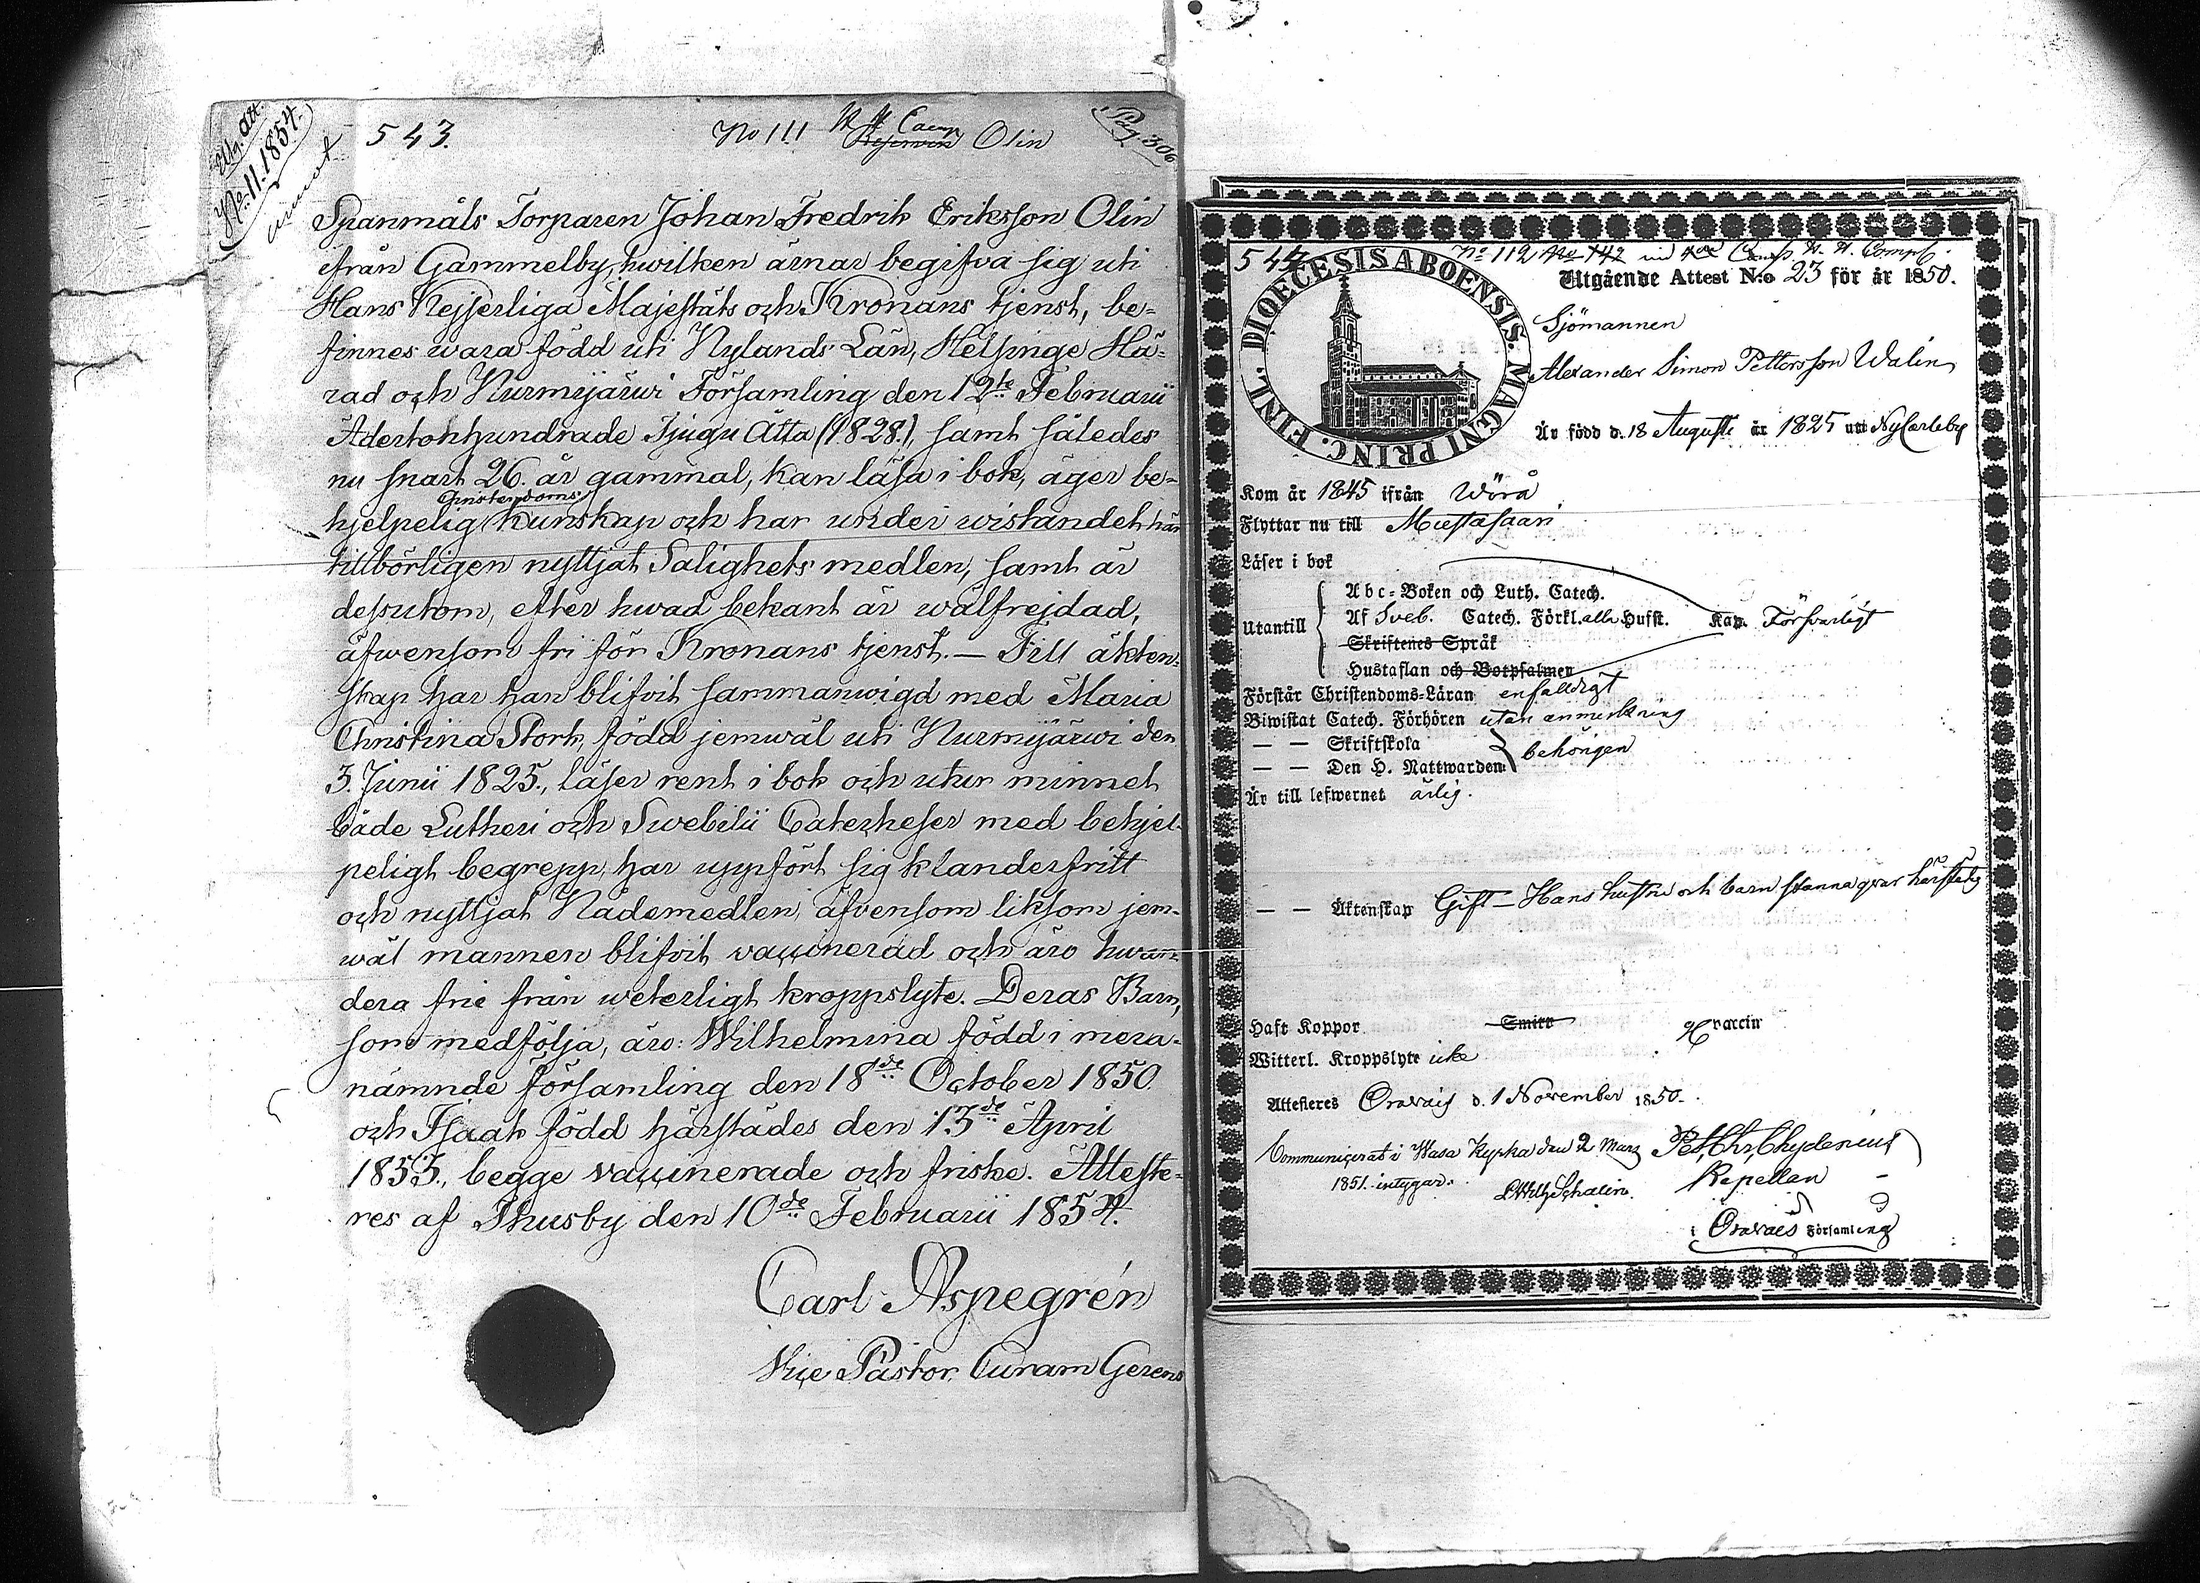 Utg. Att.
No. 11. 1854.
543.
No 111
Olin
Pag. 306
Spanmåls Torparen Johan Fredrik Eriksson Olin
ifrån Gammelby, hwilken ärnar begifva sig uti
Hans Kejserliga Majestäts och Kronans tjenst, be-
finnes wara född uti Nylands Län, Helsinge Hä-
rad och Nurmijärwi Församling den 12te Februarii
Adertonhundrade Tjugu Åtta (1828.), samt således
nu snart 26. år gammal, kan läsa i bok, äger be-
Christendoms
hjelpelig kunskap och har under wistandet här
tillbörligen nyttjat Salighets medlen, samt är
dessutom, efter hwad bekant är wälfrejdad,
äfwensom fri för Kronans tjenst. — Till äkten-
skap har han blifvit sammanwigd med Maria
Christina Stork, född jemwäl uti Nurmijärwi den
3. Junii 1825., läser rent i bok och utur minnet
både Lutheri och Swebilii Catecheser med behjel-
peligt begrepp, har uppfört sig klanderfritt
och nyttjat Nådemedlen, äfvensom liksom jem-
wäl mannen blifvit vaccinerad och äro hwar-
dera frie från weterligt kroppslyte. Deras Barn,
som medfölja, äro: Wilhelmina född i mera-
nämnde församling den 18de October 1850
och Isaak född härstädes den 13de April
1853., begge vaccinerade och friske. Atteste-
res af Thusby den 10de Februarii 1854.
Carl Aspegrén
Vice Pastor, Curam Gerens
544
No 112
DIOECESIS ABOENSIS. MAGNI PRINC. FINL.
Utgående Attest N:o 23 för år 1850.
Sjömannen
Alexander Simon Pettersson Walin
Är född d. 18 Augusti år 1825 uti Nycarleby
Kom år 1845 ifrån Wörå
Flyttar nu till Mustasaari
Läser i bok
Abc-Boken och Luth. Catech.
Utantill Af Sveb. Catech. Förkl. alla Hufst. Kap. Försvarligt
Skriftenes Språk
Hustaflan och Botpsalmen
Förstår Christendoms-Läran enfalldigt
Biwistat Catech. Förhören utan anmerkning
— — Skriftskola
behörigen
— — Den H. Nattwarden
Är till lefwernet ärlig.
— — Äktenskap Gift — Hans hustru och barn stanna qvar härstädes
Haft Koppor Smitt vaccin
Witterl. Kroppslyte icke
Attesteres Oravais d. 1 November 1850.
Communicerat i Wasa Kyrka den 2 Mars
1851. intygar.
Pet. Chr. Chydenius
Kapellan
i Oravais Församling